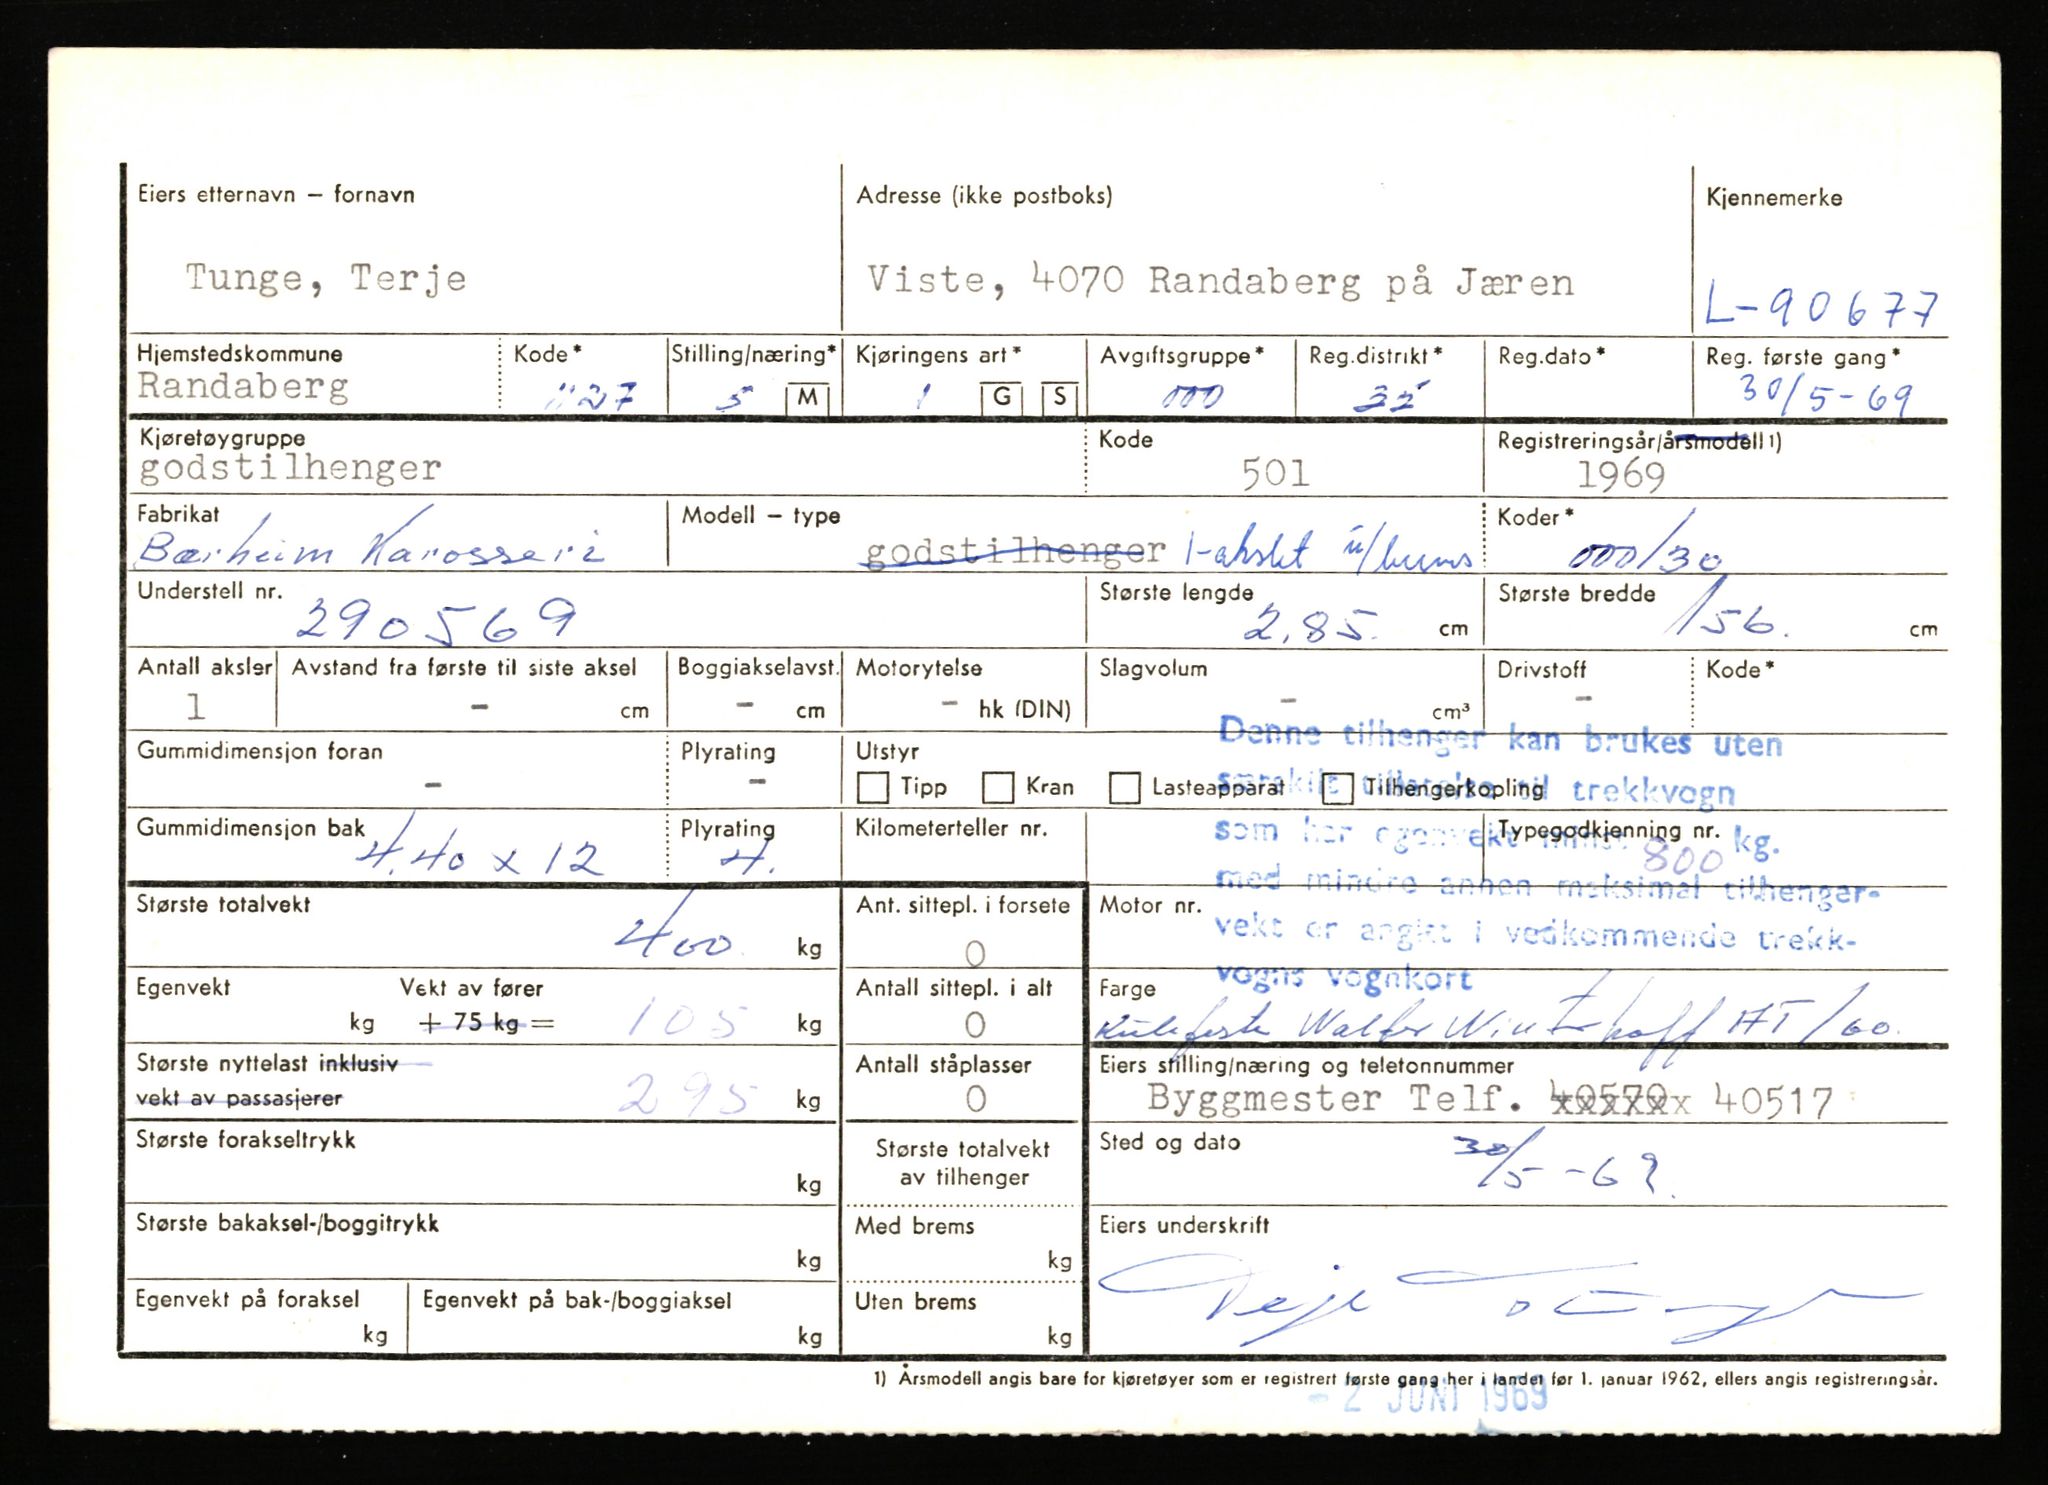 Eiers etternavn – fornavn
Adresse (ikke postboks)
Kjennemerke
Tunge, Terje
Viste, 4070 Randaberg på Jæren
L-90677
Hjemstedskommune
Kode*
Stilling/næring*
Kjøringens art*
Avgiftsgruppe*
Reg.distrikt*
Reg.dato*
Reg. første gang*
Randaberg
1127
5 M
1 G S
000
30/5-69
Kjøretøygruppe
Kode
Registreringsår/årsmodell 1)
godstilhenger
501
1969
Fabrikat
Modell – type
Koder*
Bærheim Karosseri
godstilhenger 1-akslet u/brems
000/30
Understell nr.
Største lengde
Største bredde
290569
2,85. cm
156. cm
Antall aksler
Avstand fra første til siste aksel
Boggiakselavst.
Motorytelse
Slagvolum
Drivstoff
Kode*
1
- cm
- cm
- hk (DIN)
- cm³
-
Gummidimensjon foran
Plyrating
Utstyr
-
-
Tipp Kran Lasteapparat Tilhengerkopling
Denne tilhenger kan brukes uten
særskilt tillatelse til trekkvogn
som har egenvekt minst 800 kg.
med mindre annen maksimal tilhenger-
vekt er angitt i vedkommende trekk-
vogns vognkort
Gummidimensjon bak
Plyrating
Kilometerteller nr.
Typegodkjenning nr.
4.40 x 12
4.
Største totalvekt
Ant. sittepl. i forsete
Motor nr.
400 kg
0
Egenvekt
Vekt av fører
Antall sittepl. i alt
Farge
kg + 75 kg = 105 kg
0
Kulefeste Walter Winterhoff AT/60.
Største nyttelast inklusiv
vekt av passasjerer
295 kg
Antall ståplasser
0
Eiers stilling/næring og telefonnummer
Byggmester Telf. 40570x 40517
Største forakseltrykk
kg
Største totalvekt
av tilhenger
Sted og dato
30/5-69.
Største bakaksel-/boggitrykk
kg
Med brems
kg
Eiers underskrift
Terje Tunge
Egenvekt på foraksel
kg
Egenvekt på bak-/boggiaksel
kg
Uten brems
kg
1) Årsmodell angis bare for kjøretøyer som er registrert første gang her i landet før 1. januar 1962, ellers angis registreringsår.
- 2 JUNI 1969